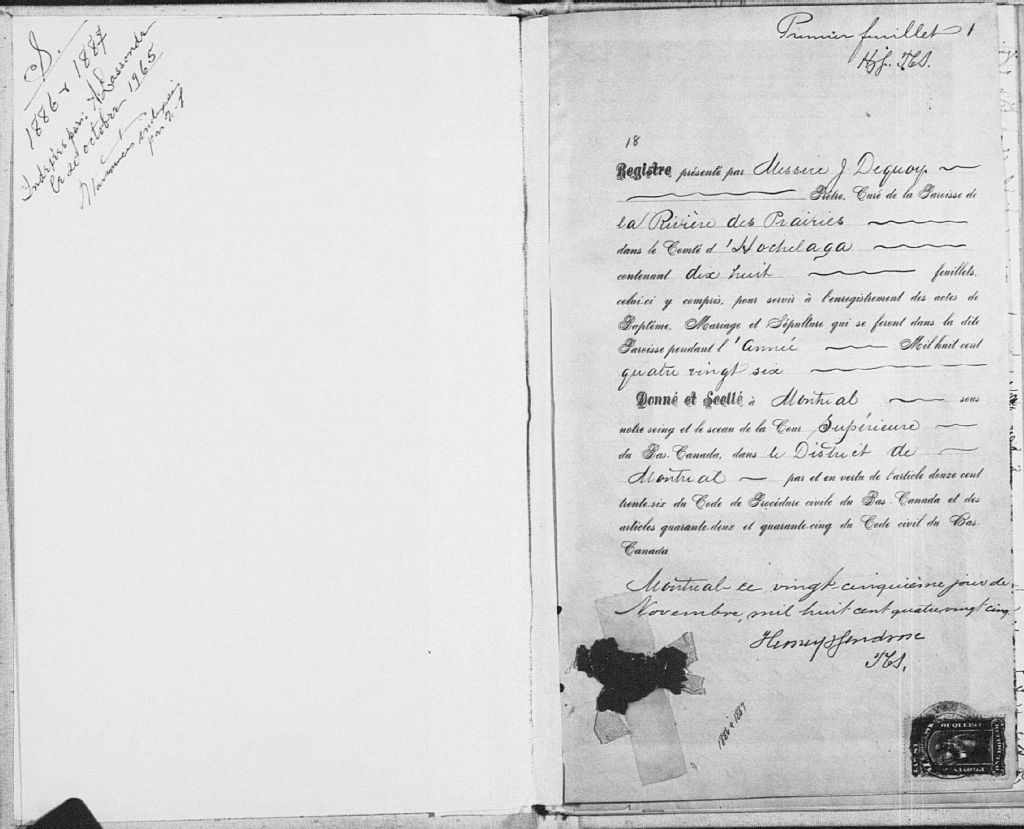 S.
1886 & 1887
Indexés par: A. Lassonde
le 20 octobre 1965
Premier feuillet 1
18
Registre présenté par Messire J Dequoy
Prêtre, Curé de la Paroisse de
la Rivière des Prairies
dans le Comté d'Hochelaga
contenant dix huit feuillets,
celui-ci y compris, pour servir à l'enregistrement des actes de
Baptême, Mariage et Sépulture qui se feront dans la dite
Paroisse pendant l'Année Mil huit cent
quatre vingt six
Donné et Scellé à Montreal sous
notre seing et le sceau de la Cour Supérieure
du Bas-Canada, dans le District de
Montreal par et en vertu de l'article douze cent
trente-six du Code de Procédure civile du Bas-Canada et des
articles quarante-deux et quarante-cinq du Code civil du Bas-
Canada
Montreal ce vingt-cinquième jour de
Novembre, mil huit cent quatre vingt cinq
1886 & 1887
OF QUEBEC